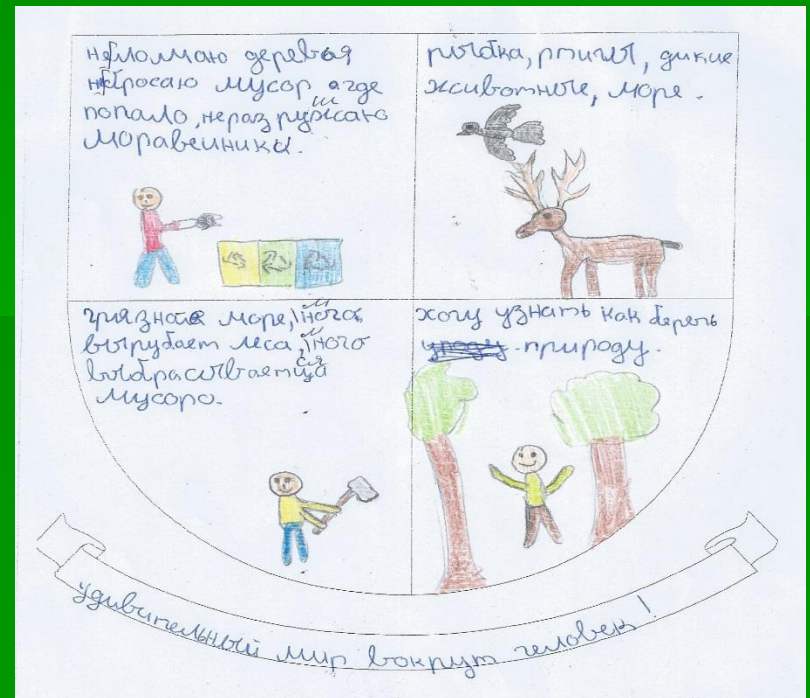 не ломаю деревья
не бросаю мусор а где
попало, не разрушаю
моравейники.
рыбка, ртицы, дикие
животные, море.
грязное море, много
вырубает леса, много
выбрасывается
мусоро.
хочу узнать как беречь
природу.
удивительный мир вокруг человек!